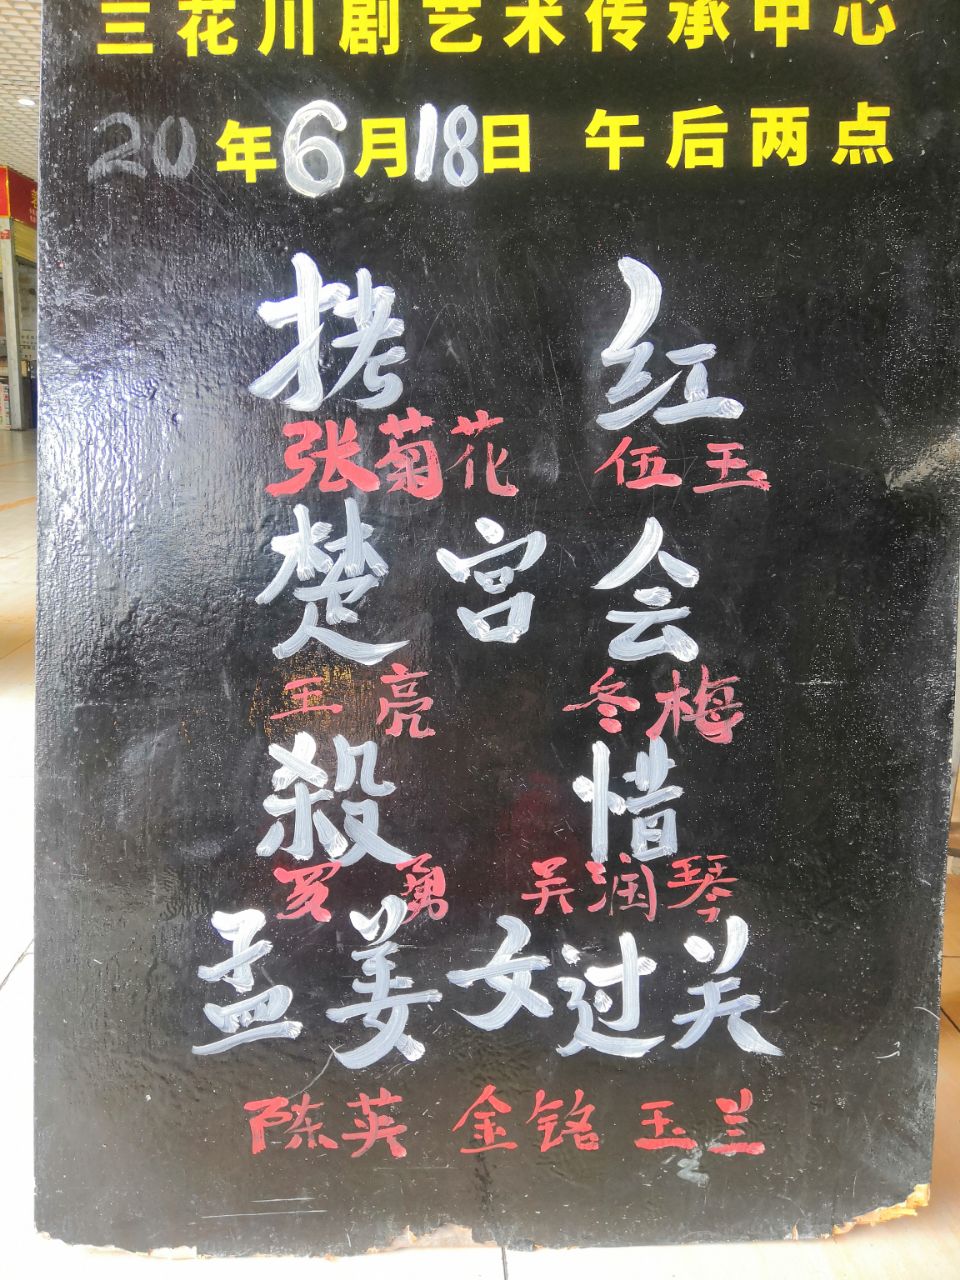 三花川剧艺术传承中心
20年6月18日 午后两点
拷 红
张菊花 伍玉
楚宫会
王亮 冬梅
殺惜
罗勇 吴润琴
孟姜女过关
陈英 金铭 玉兰